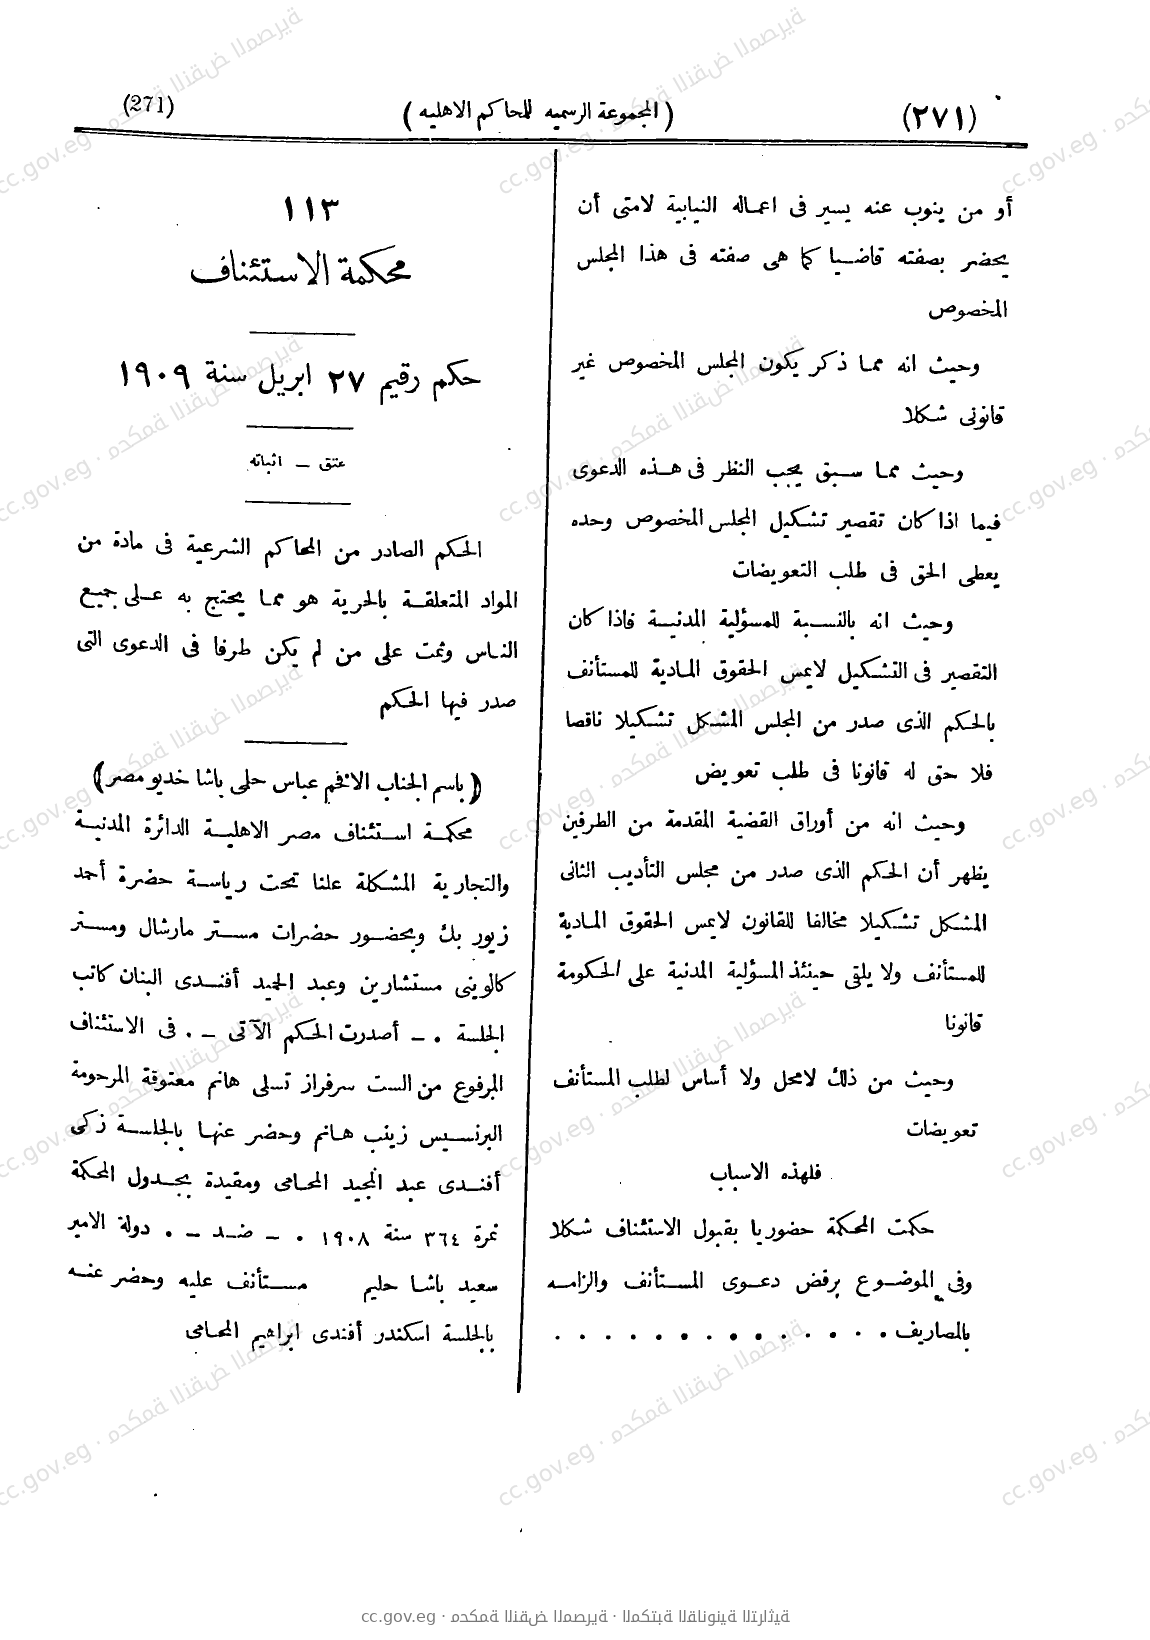 (٢٧١)
(المجموعة الرسميه للمحاكم الاهليه)
(271)
أو من ينوب عنه يسير فى اعماله النيابية لامتى أن
يحضر بصفته قاضيا كما هى صفته فى هذا المجلس
المخصوص
وحيث انه مما ذكر يكون المجلس المخصوص غير
قانونى شكلا
وحيث مما سبق يجب النظر فى هذه الدعوى
فيما اذا كان تقصير تشكيل المجلس المخصوص وحده
يعطى الحق فى طلب التعويضات
وحيث انه بالنسبة للمسؤلية المدنية فاذا كان
التقصير فى التشكيل لايمس الحقوق المادية للمستأنف
بالحكم الذى صدر من المجلس المشكل تشكيلا ناقصا
فلا حق له قانونا فى طلب تعويض
وحيث انه من أوراق القضية المقدمة من الطرفين
يظهر أن الحكم الذى صدر من مجلس التأديب الثانى
المشكل تشكيلا مخالفا للقانون لايمس الحقوق المادية
للمستأنف ولا يلقى حينئذ المسؤلية المدنية على الحكومة
قانونا
وحيث من ذلك لامحل ولا أساس لطلب المستأنف
تعويضات
فلهذه الاسباب
حكمت المحكمة حضوريا بقبول الاستئناف شكلا
وفى الموضوع برفض دعوى المستأنف والزامه
بالمصاريف . . . . . . . . . . . . . .
١١٣
محكمة الاستئناف
حكم رقيم ٢٧ ابريل سنة ١٩٠٩
عتق – اثباته
الحكم الصادر من المحاكم الشرعية فى مادة من
المواد المتعلقة بالحرية هو مما يحتج به على جميع
الناس وثمت على من لم يكن طرفا فى الدعوى التى
صدر فيها الحكم
(باسم الجناب الافخم عباس حلمى باشا خديو مصر)
محكمة استئناف مصر الاهلية الدائرة المدنية
والتجارية المشكلة علنا تحت رياسة حضرة أحمد
زيور بك وبحضور حضرات مستر مارشال ومستر
كالوينى مستشارين وعبد الحميد أفندى البنان كاتب
الجلسة . – أصدرت الحكم الآتى – . فى الاستئناف
المرفوع من الست سرفراز تسلى هانم معتوقة المرحومة
البرنسيس زينب هانم وحضر عنها بالجلسة زكى
أفندى عبد المجيد المحامى ومقيدة بجدول المحكمة
نمرة ٣٦٤ سنة ١٩٠٨ . – ضد – . دولة الامير
سعيد باشا حليم مستأنف عليه وحضر عنه
بالجلسة اسكندر أفندى ابراهيم المحامى
cc.gov.eg · محكمة النقض المصرية · المكتبة القانونية التراثية